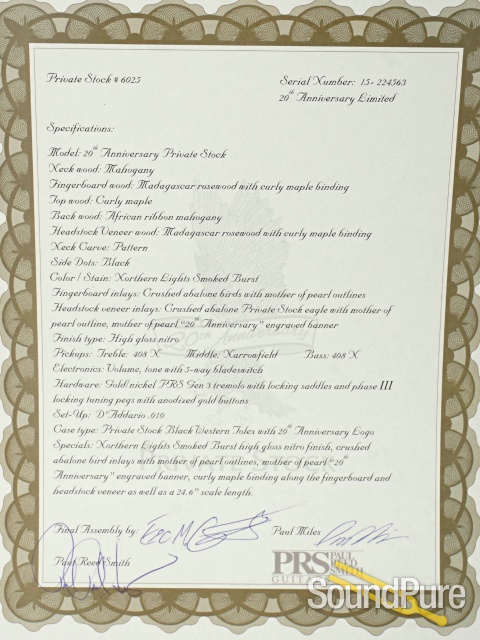 Private Stock # 6025
Serial Number: 15-224563
20th Anniversary Limited
Specifications:
Model: 20th Anniversary Private Stock
Neck wood: Mahogany
Fingerboard wood: Madagascar rosewood with curly maple binding
Top wood: Curly maple
Back wood: African ribbon mahogany
Headstock Veneer wood: Madagascar rosewood with curly maple binding
Neck Carve: Pattern
Side Dots: Black
Color / Stain: Northern Lights Smoked Burst
Fingerboard inlays: Crushed abalone birds with mother of pearl outlines
Headstock veneer inlays: Crushed abalone Private Stock eagle with mother of
pearl outline, mother of pearl "20th Anniversary" engraved banner
Finish type: High gloss nitro
Pickups: Treble: 408 N Middle: Narrowfield Bass: 408 N
Electronics: Volume, tone with 5-way bladeswitch
Hardware: Gold/nickel PRS Gen 3 tremolo with locking saddles and phase III
locking tuning pegs with anodized gold buttons
Set-Up: D'Addario .010
Case type: Private Stock Black Western Tolex with 20th Anniversary Logo
Specials: Northern Lights Smoked Burst high gloss nitro finish, crushed
abalone bird inlays with mother of pearl outlines, mother of pearl "20th
Anniversary" engraved banner, curly maple binding along the fingerboard and
headstock veneer as well as a 24.6" scale length.
20th Anniversary
PRIVATE STOCK
Final Assembly by:
Paul Miles
Paul Reed Smith
PRS PAUL REED SMITH
GUITARS
SoundPure